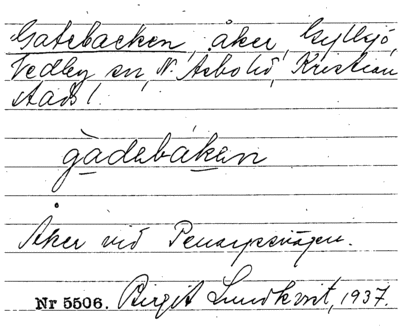 Gatebacken, åker, Gyllsjö,
Vedby sn, N. Åsbo hd, Kristian
stads l.
gàdebáken
Åker vid Penarpsvägen.
Nr 5506. Birgit Lundkvist, 1937.